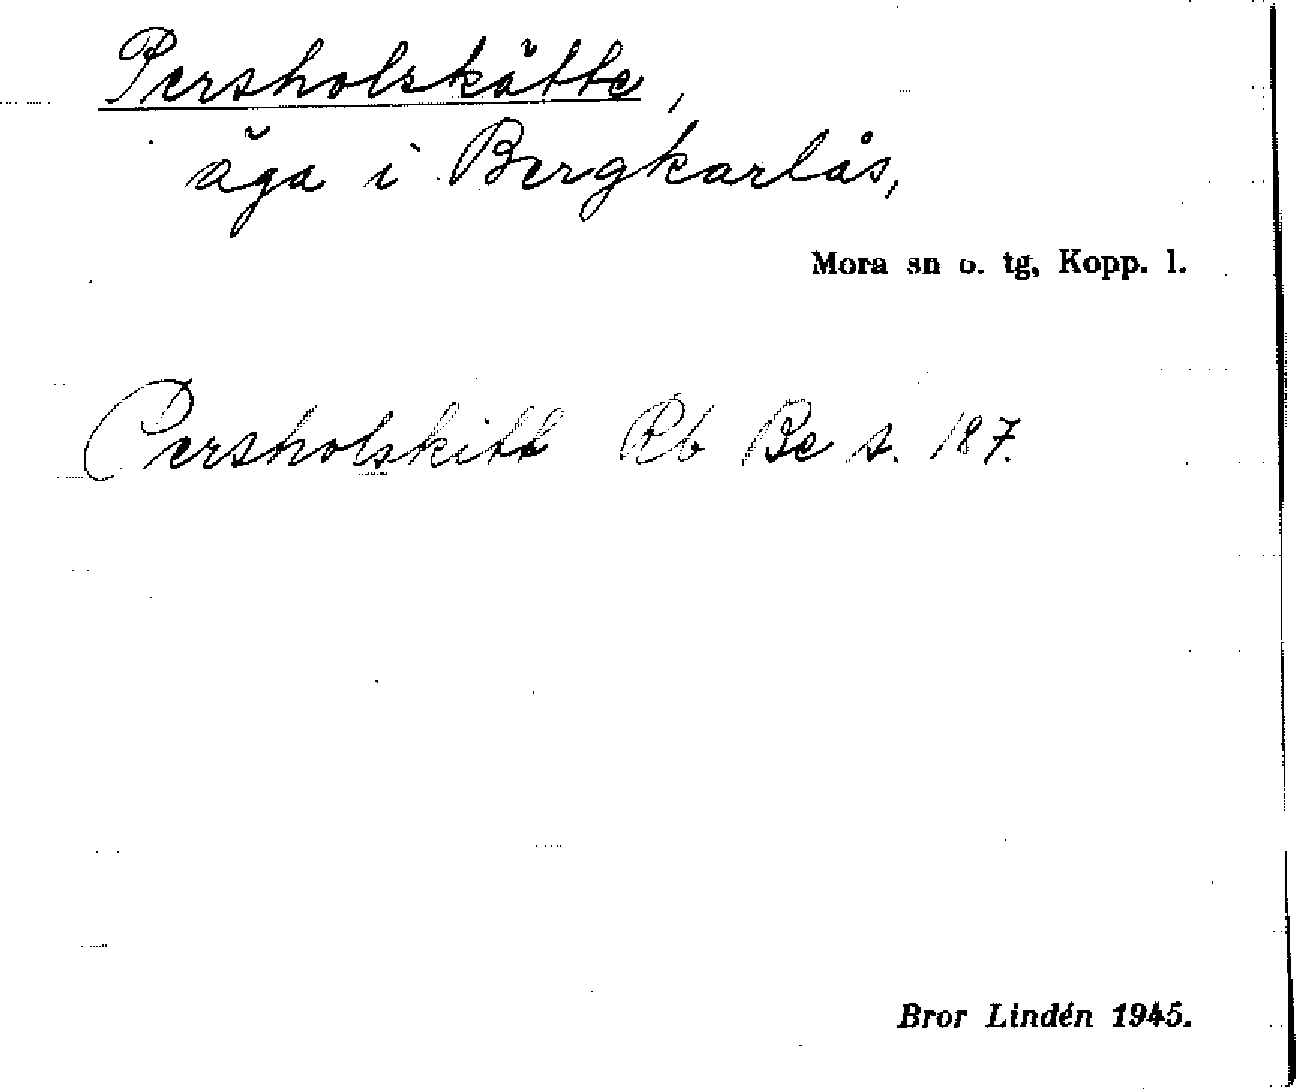 Persholskätte,
äga i Bergkarlås,
Mora sn o. tg, Kopp. l.
Persholskitt Rb Be s. 187.
Bror Lindén 1945.